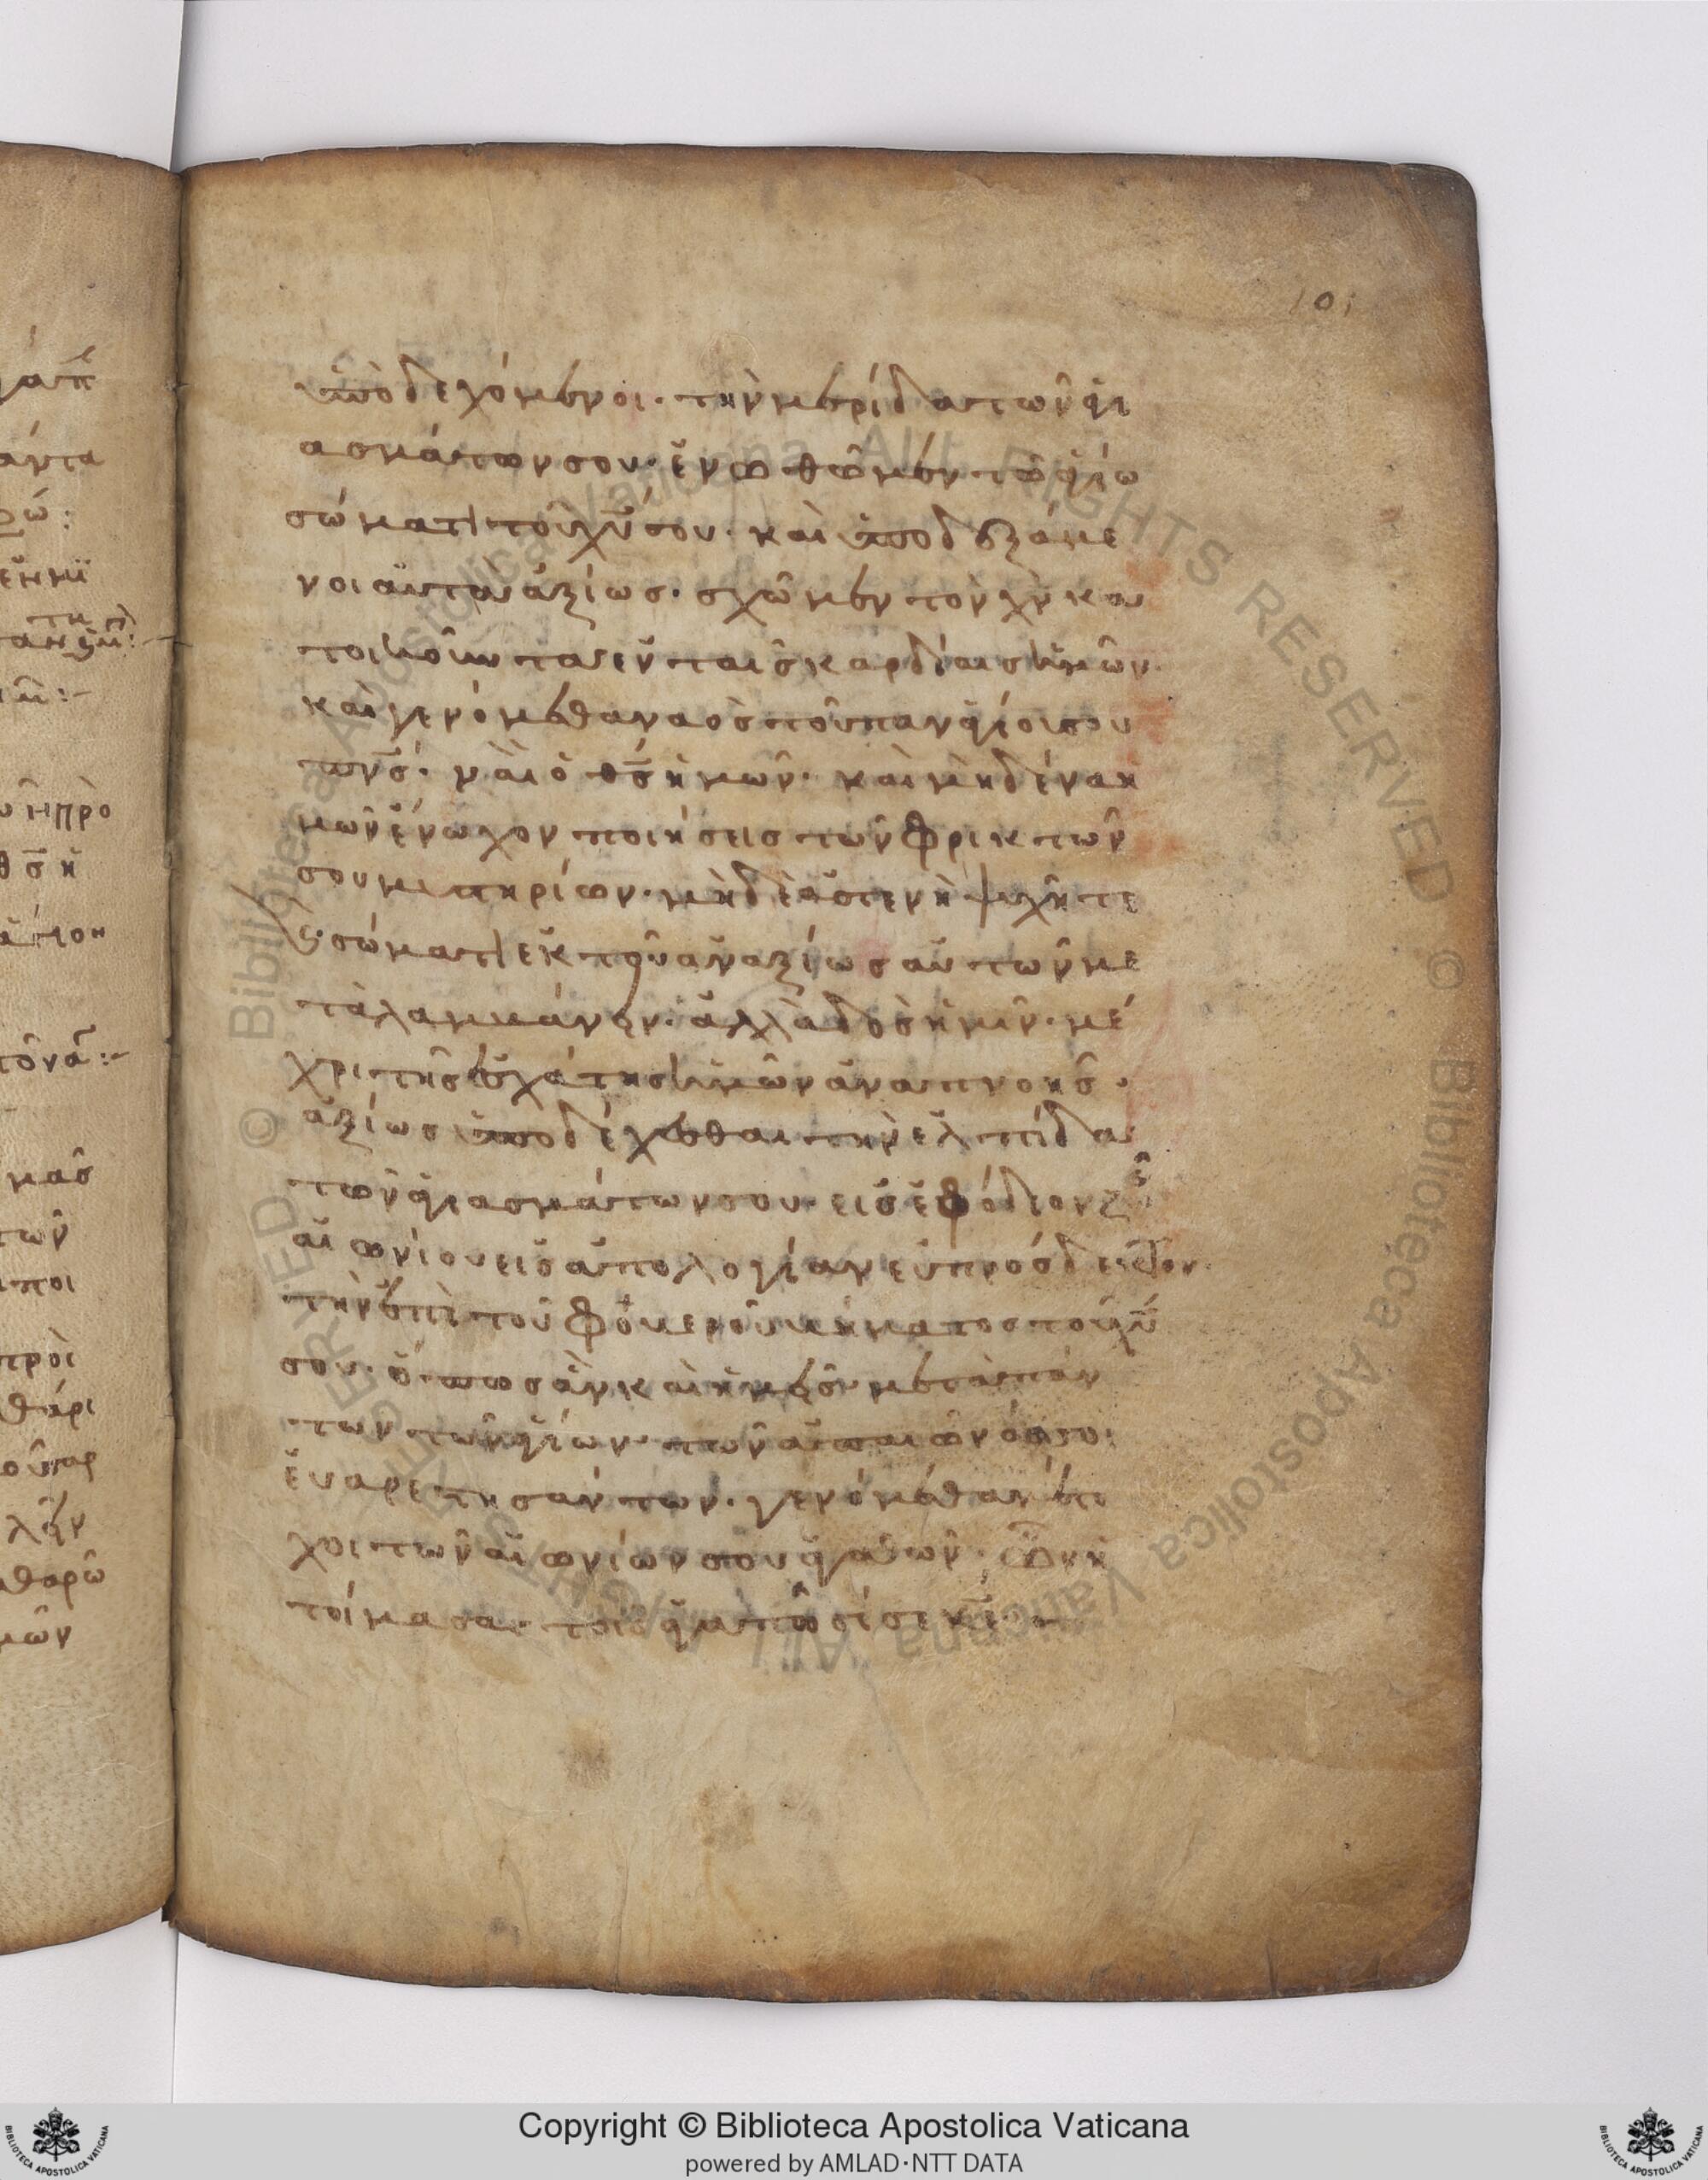 101
ὑποδεχόμενοι· τὴν μερίδα τῶν ἁγι
ασμάτων σου· ἑνωθῶμεν τῶ ἁγίω
σώματι τοῦ χ̅υ̅ σου· καὶ ὑποδεξάμε
νοι αὐτὰ ἀξίως· σχῶμεν τὸν χ̅ν̅ κα
τοικοῦντα ἐν ταῖς καρδίαις ἡμῶν·
καὶ γενόμεθα ναὸς τοῦ παναγίου σου
π̅ν̅ς̅· ναὶ ὁ θ̅ς̅ ἡμῶν· καὶ μηδένα ἡ
μῶν ἔνωχον ποιήσεις τῶν φρικτῶν
σου μυστηρίων· μηδὲ ἀστενῆ ψυχῆ τε
ϗ σώματι ἐκ τοῦ ἀναξίως αὐτῶν με
ταλαμβάνον· ἀλλὰ δὸς ἡμῖν· μέ
χρι τῆς ἐσχάτης ἡμῶν ἀναπνοῆς·
ἀξίως ὑποδέχεσθαι τὴν ἐλπίδα
τῶν ἁγιασμάτων σου· εἰς ἐφόδιον ζ
αἰωνίου εἰς ἀπολογίαν εὐπρόσδεκτον
τὴν ἐπὶ τοῦ φοβεροῦ βήματος τοῦ χ̅υ̅
σου· ὅπως ἂν καὶ ἡμεῖς μετὰ πάν
των τῶν ἁγίων· τῶν ἀπ αἰῶνός σοι
εὐαρεστησάντων· γενόμεθα μέτο
χοι τῶν αἰωνίων σου ἀγαθῶν· ὧν ἡ
τοίμασας τοῖς ἀγαπῶσί σε κ̅ε̅
Copyright © Biblioteca Apostolica Vaticana
powered by AMLAD·NTT DATA